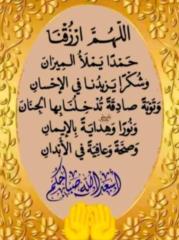 اللَّهُمَّ ارْزُقْنَا
حَمْدًا يَمْلَأُ الْمِيزَانَ
وَشُكْرًا يَزِيدُنَا فِي الْإِحْسَانِ
وَتَوْبَةً صَادِقَةً تُدْخِلُنَا بِهَا الْجِنَانَ
وَنُورًا وَهِدَايَةً بِالْإِيمَانِ
وَصِحَّةً وَعَافِيَةً فِي الْأَبْدَانِ
أسعد الله صباحكم